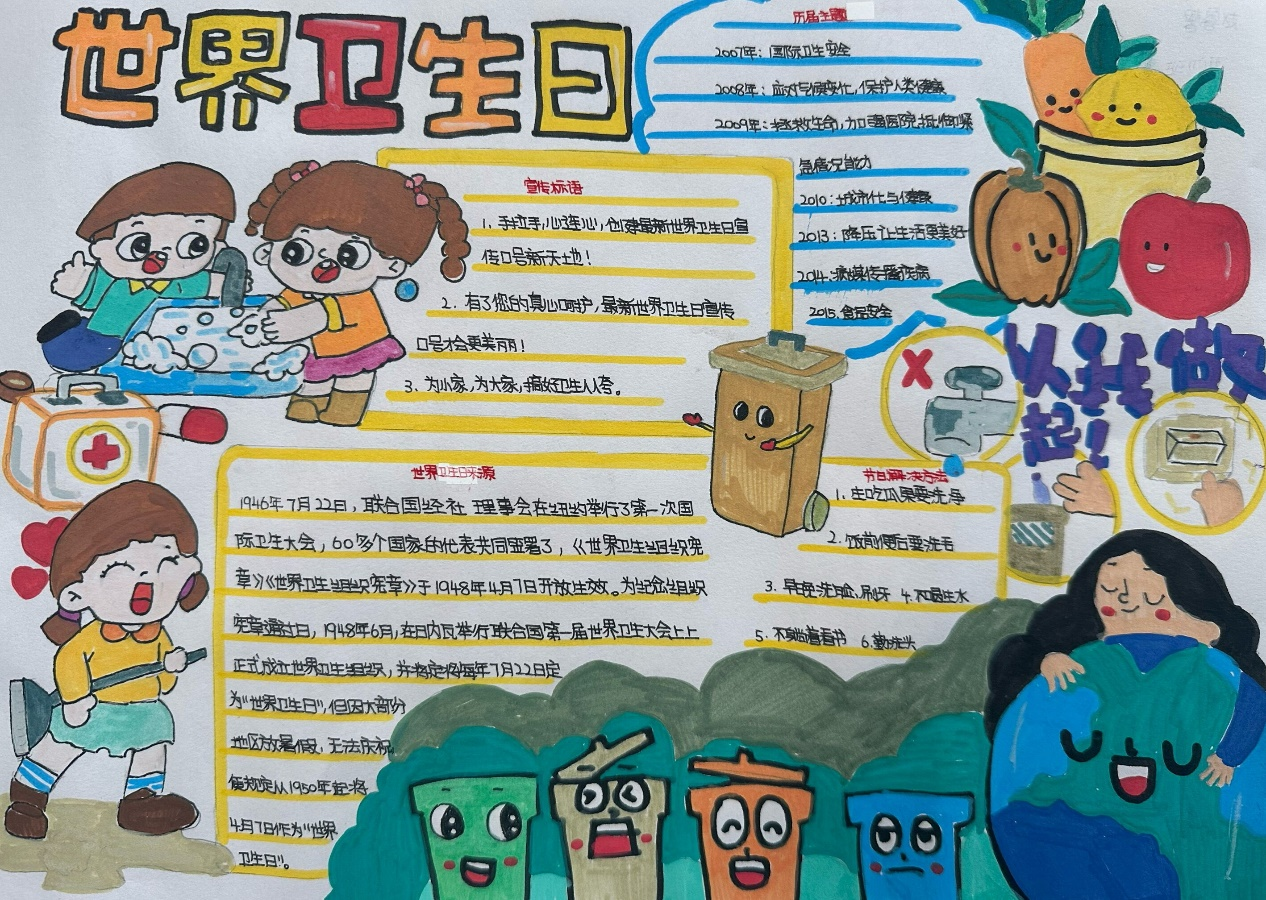 世界卫生日
历届主题
2007年：国际卫生安全
2008年：应对气候变化，保护人类健康
2009年：拯救生命，加强医院抵御紧
急情况能力
2010：城市化与健康
2013：降压让生活更美好
2014：病媒传播疾病
2015.食品安全
宣传标语
1、手拉手，心连心，创建最新世界卫生日宣
传口号新天地！
2．有了您的真心呵护，最新世界卫生日宣传
口号才会更美丽！
3、为小家，为大家，搞好卫生人人夸。
以我做
起！
世界卫生日来源
1946年7月22日，联合国经社 理事会在纽约举行了第一次国
际卫生大会，60多个国家的代表共同签署了，《世界卫生组织宪
章》《世界卫生组织宪章》于1948年4月7日开放生效。为纪念组织
宪章通过日，1948年6月，在日内瓦举行联合国第一届世界卫生大会上上
正式成立世界卫生组织，并将定将每年7月22日定
为"世界卫生日"，但因大部份
地区放暑假，无法庆祝
便规定从1950年起将
4月7日作为"世界
卫生日"。
节日解决方法
1．生吃瓜果要洗净
2．饭前便后要洗手
3．早晚洗脸、刷牙 4．不喝生水
5．不躺着看书 6．勤洗头